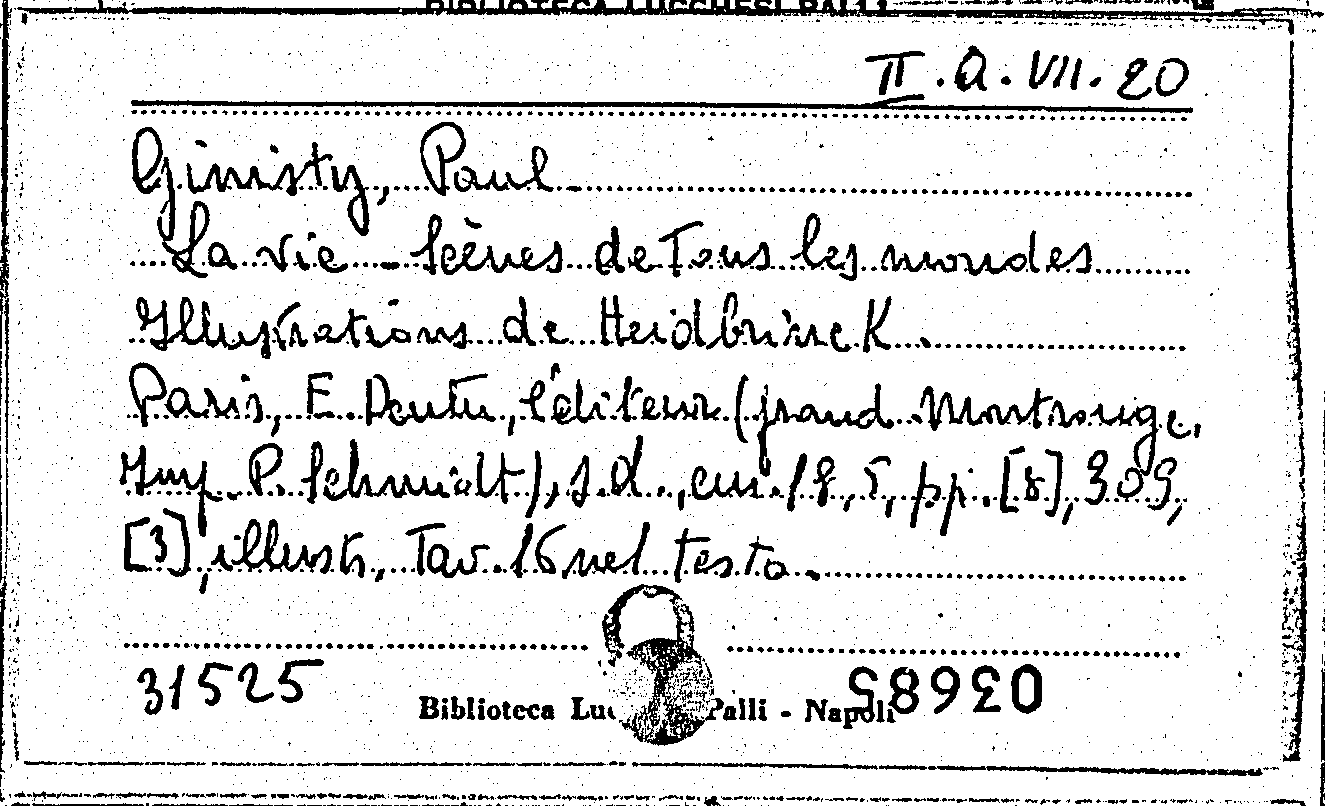 BIBLIOTECA LUCCHESI PALLI
II.Q.VII.20
Ginisty, Paul
La vie - Scènes de Tous les mondes
Illustrations de Heidbrinck.
Paris, E. Dentu, éditeur (grand Montrouge,
Imp. P. Schmidt), s.d., cm. 18,5, pp. [8], 309,
[3], illustr, Tav. 16 nel testo.
31525
Biblioteca Palli - Napoli
03685